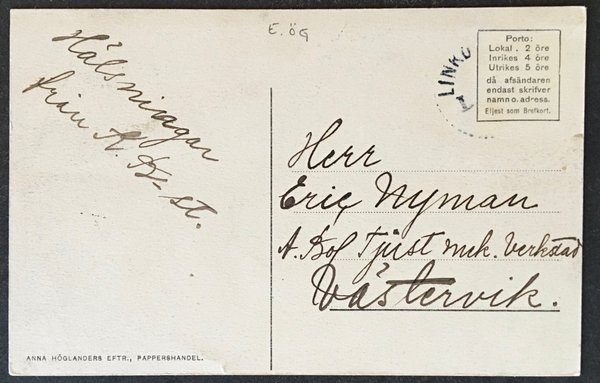 E. ÖG
Hälsningar
från A. B-st.
LINKÖ
Porto:
Lokal . 2 öre
Inrikes 4 öre
Utrikes 5 öre
då afsändaren
endast skrifver
namn o. adress.
Eljest som Brefkort.
Herr
Eric Nyman
A. Bol Tjust mek. Verkstad
Västervik.
ANNA HÖGLANDERS EFTR., PAPPERSHANDEL.